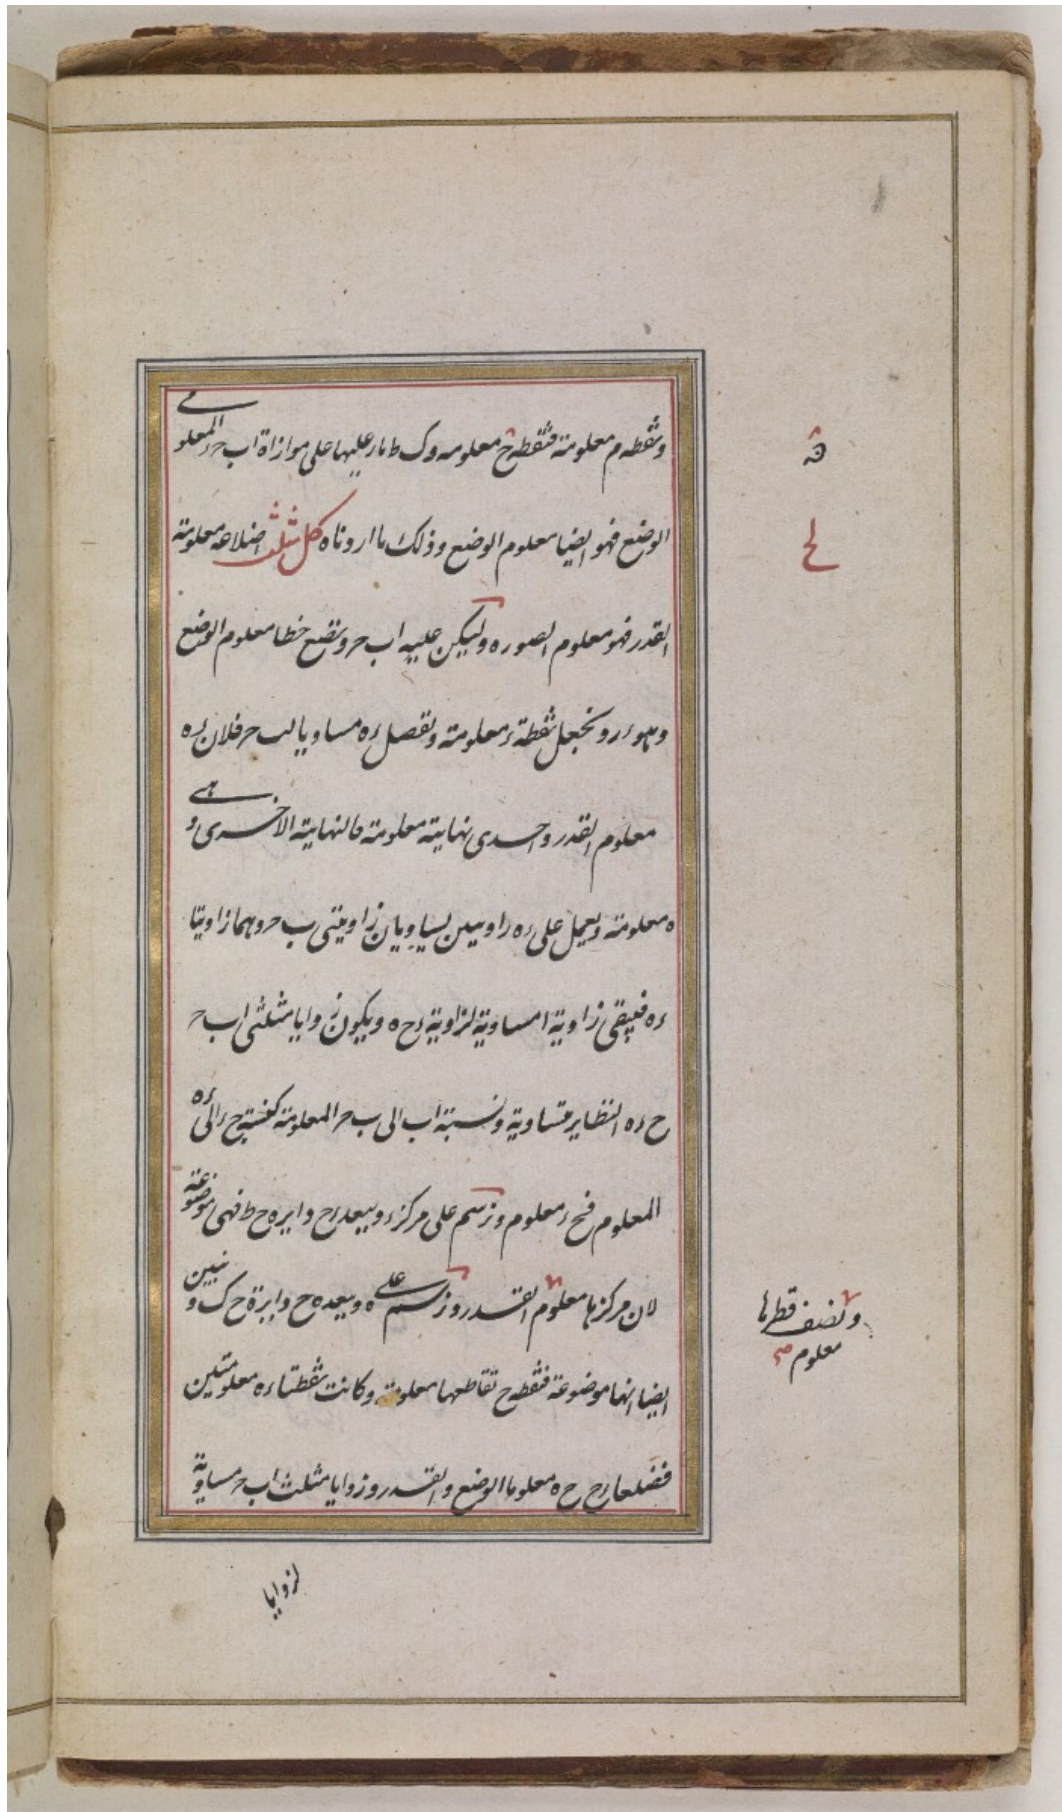 ونقطه م معلومة فنقطه ح معلومه وك ط مار عليها على موازاة اب ح المعلو
مى
الوضع فهو ايضا معلوم الوضع وذلك ما اردناه كل مثلث اضلاعه معلومة
القدر فهو معلوم الصوره وليكن عليه اب ح ونضع خطا معلوم الوضع
وهو ء ر ونجعل نقطة ء معلومة ونفصل ء ه مساويا لب ح فلان ء ه
معلوم القدر واحدى نهايته معلومة فالنهاية الاخرى و
هى
ه معلومة ونعمل على ء ه زاويتين يساويان زاويتى ب ح وهما زاويتا
ء ه فيبقى زاوية ا مساوية لزاوية ء ح ه ويكون زوايا مثلثى اب ح
ح ء ه النظاير متساوية ونسبة اب الى ب ح المعلومة كنسبة ح ء الى ء ه
المعلوم فح ء معلوم ونرسم على مركز ء وببعد ء ح دايره ح ط فهى موضوعة
لان مركزها معلوم القدر ونرسم على ه وببعد ه ح دايرة ح ك و نبين
ايضا انها موضوعة فنقطه ح تقاطعهما معلومة وكانت نقطتا ء ه معلومتين
فضلعا ء ح ح ه معلوما الوضع والقدر وزوايا مثلث اب ح مساوية
لزوايا
لح
ونصف قطرها
معلوم صح